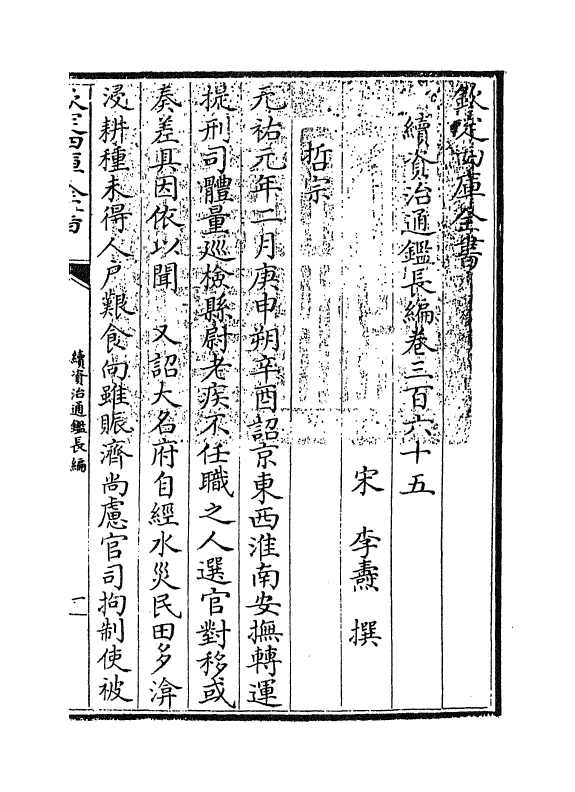 欽定四庫全書
續資治通鑑長編卷三百六十五
宋 李燾 撰
哲宗
元祐元年二月庚申朔辛酉詔京東西淮南安撫轉運
提刑司體量巡檢縣尉老疾不任職之人選官對移或
奏差具因依以聞 又詔大名府自經水災民田多渰
浸耕種未得人戸艱食向雖賑濟尚慮官司拘制使被
欽定四庫全書
續資治通鑑長編
一